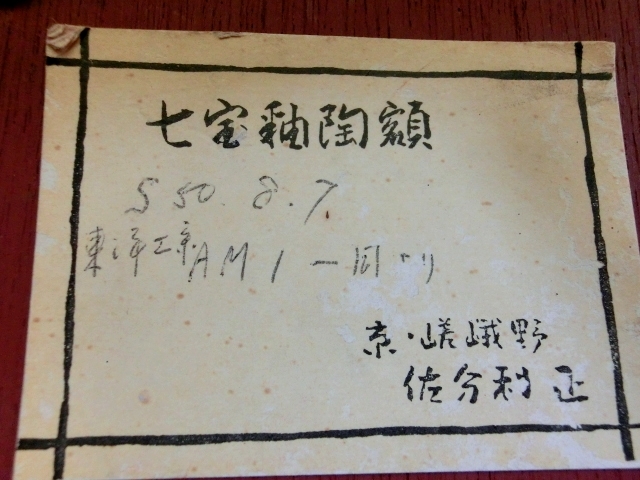 七宝釉陶額
S 50. 8. 7
東洋工京 AM 1 一同ヨリ
京・嵯峨野
佐分利 正